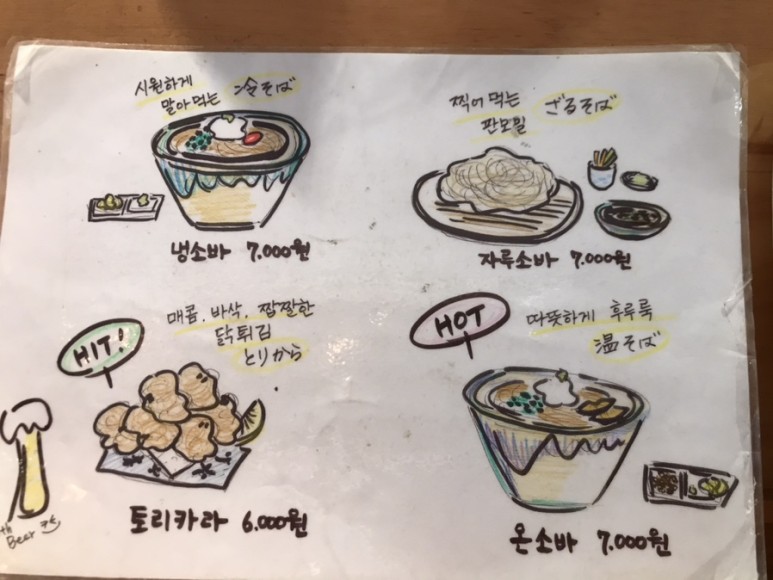 시원하게
말아먹는 冷そば
냉소바 7.000원
찍어 먹는 ざるそば
판모밀
자루소바 7.000원
HIT!
매콤. 바삭. 짭짤한
닭튀김
とりから
토리카라 6.000원
th
Beer
HOT
따뜻하게 후루룩
温そば
온소바 7.000원